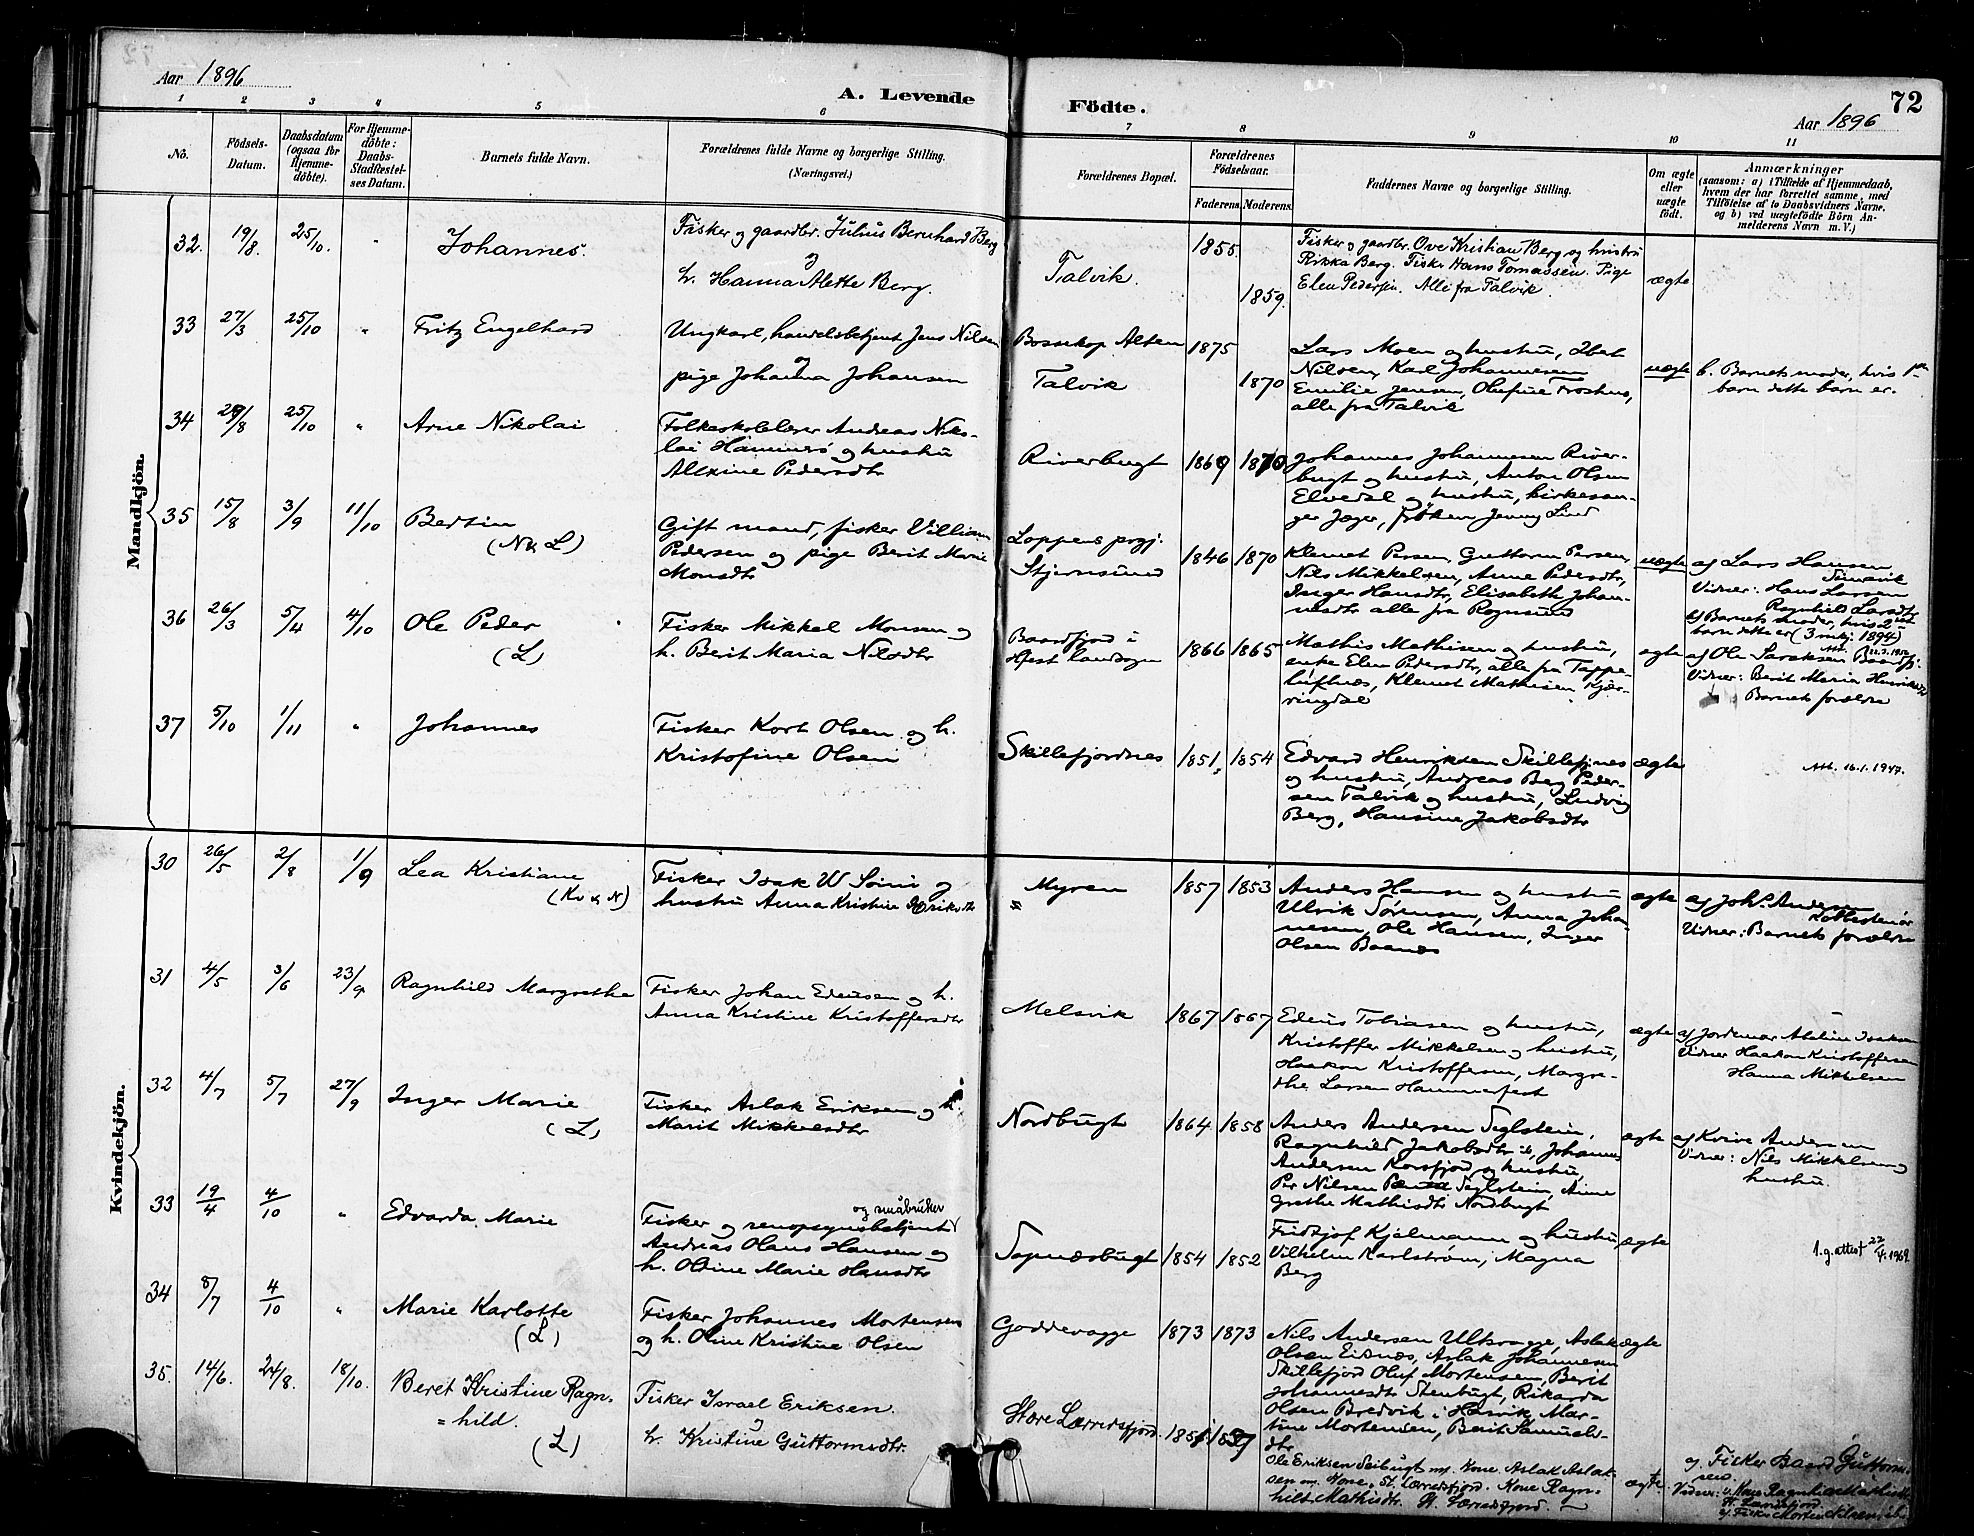 Aar 1896
A. Levende
Födte.
72
Aar 1896
1 2 3 4 5 6 7 8 9 10 11
No.
Födsels-
Datum.
Daabsdatum
(ogsaa for
Hjemme-
döbte).
For Hjemme-
döbte:
Daabs-
Stadfæstel-
ses Datum.
Barnets fulde Navn.
Forældrenes fulde Navne og borgerlige Stilling.
(Næringsvei.)
Forældrenes Bopæl.
Forældrenes
Födselsaar.
Faderens. Moderens.
Faddernes Navne og borgerlige Stilling.
Om ægte
eller
uægte
födt.
Anmærkninger
(saasom: a) i Tilfælde af Hjemmedaab,
hvem der har forrettet samme, med
Tilföielse af to Daabsvidners Navne.
og b) ved uægtefödte Börn An-
melderens Navn m. V.)
Mandkjön.
32. 19/8. 25/10. " Johannes.
Fisker og gaardbr. Julius Bernhard Berg
og
h. Hanna Alette Berg.
Talvik. 1855. 1859.
Fisker og gaardbr. Ove Kristian Berg og hustru
Rikka Berg. Fisker Hans Tomassen. Pige
Elen Pedersen. Alle fra Talvik.
ægte
33 27/3 25/10 " Fritz Engelhard
Ungkarl, handelsbetjent Jens Nilsen
og
pige Johanna Johansen
Bossekop Alten
Talvik
1875 1870
Lars Moen og hustru,
Nilsen, Karl Johannesen
Emilie Jensen, Olufine
alle fra Talvik
uægte
b. Barnets moder, hvis 1ste
barn dette barn er.
34 /8 25/10 " Arne Nikolai
Folkeskolelærer Andreas Niko-
lai Hammerö og hustru
Alexine Pedersdtr
Riverbugt 1869 1870
Johannes Johannesen River-
bugt og hustru, Anton Olsen
Elvedal og hustru, kirkesan-
ger Jæger, fröken Jenny Lind
35 15/8 3/9 11/10 Bertin
(N & L)
Gift mand, fisker Villiam
Pedersen og pige Berit Marie
Monsdtr
Loppens prgj.
Stjernsund
1846 1870
Klemet Persen, Guttorm Persen,
Nils Mikkelsen, Anne Pedersdtr,
Inger Hansdtr, Elisabeth Johan-
nesdtr alle fra Rognsund
uægte
a) Lars Hansen
Vidner: Hans Larsen
Ragnhild Larsdtr
b) Barnets moder, hvis 2det
barn dette er (3 mkj. 1894)
36 26/3 5/4 4/10 Ole Peder
(L)
Fisker Mikkel Monsen og
h. Berit Maria Nilsdtr
Baardfjord i
Hfest landsogn
1866 1865
Mathis Mathisen og hustru,
enke Elen Pedersdtr, alle fra Tappe-
luftnæs, Klemet Mathisen Kjær-
ringdal
ægte
a) Ole Saraksen Baardfj.
Vidner: Berit Maria Henriksdtr
Barnets forældre
37 5/10 1/11 " Johannes
Fisker Kort Olsen og h.
Kristofine Olsen
Skillefjordnes 1851, 1854
Edvard Henriksen Skillefjnes
og hustru, Andreas Berg Peder-
sen Talvik og hustru, Ludvig
Berg, Hansine Jakobsdtr
ægte
Att. 16.1.1947.
Kvindekjön.
30 26/5 2/8 1/9 Lea Kristiane
(Kv & N)
Fisker Isak W Soini og
hustru Anna Kristine Eriksdtr
" Myren 1857 1853
Anders Hansen og hustru
Ulrik Sørensen, Anna Joha-
nesen, Ole Hansen, Inger
Olsen Boanæs
ægte
a) Johs. Andersen
Vidner: Barnets forældre
31 4/5 3/6 23/9 Ragnhild Margrethe
Fisker Johan Edeusen og h.
Anna Kristine Kristoffersdtr
Melsvik 1867 1867
Edeus Tobiasen og hustru,
Kristoffer Mikkelsen og hustru,
Haakon Kristoffersen, Margre-
the Larsen Hammerfest
ægte
a) Jordemor Atalie Isaksen
Vidner Haakon Kristoffersen
Hanna Mikkelsen
32 4/7 5/7 27/9 Inger Marie
(L)
Fisker Aslak Eriksen og h.
Marit Mikkelsdtr
Nordbugt 1864 1858
Anders Andersen Seglstein,
Ragnhild Jakobsdtr ib, Johannes
Andersen Korsfjord og hustru
Per Nilsen Seglstein, Anne
Grethe Mathisdtr Nordbugt
ægte
a) Kvive Andersen
Vidner: Nils Mikkelsen og
hustru.
33 19/4 4/10 " Edvarda Marie
og småbruker
Fisker og renopsynsbetjent
Andreas Olaus Hansen og
h. Oline Marie Hansdtr
Sopnæsbugt 1854 1852
Fridtjof Kjelmann og hustru
Vilhelm Karlstrøm, Magna
Berg
ægte
1.g. attest 22/ 1969
34 8/7 4/10 " Marie Karlotte
(L)
Fisker Johannes Mortensen
og h. Oline Kristine Olsen
Goddevagge 1873 1873
Nils Andersen Ultsvagge, Aslak
Olsen Eidsnæs, Aslak Johannesen
Skillefjord Oluf Mortensen, Berit
Johannesdtr Stenbugt, Rikarda
Olsen Bredvik i Hasvik, Mar-
tine Mortensen, Berit Samuels-
dtr
ægte
35. 14/6. 24/8. 18/10. Beret Kristine Ragn-
=hild.
(L)
Fisker Israel Eriksen.
og
h. Kristine Guttormsdtr.
Store Lærredsfjord. 1857
Ole Eriksen Seibugt m. Kone. Aslak Aslak-
sen m. Kone, St. Lærredsfjord. Kone Ragn-
hild Mathisdtr. St. Lærredsfjord.
ægte.
a) Fisker Baard Guttorm-
sen.
Vidner: Kone Ragnhild Mathisdtr